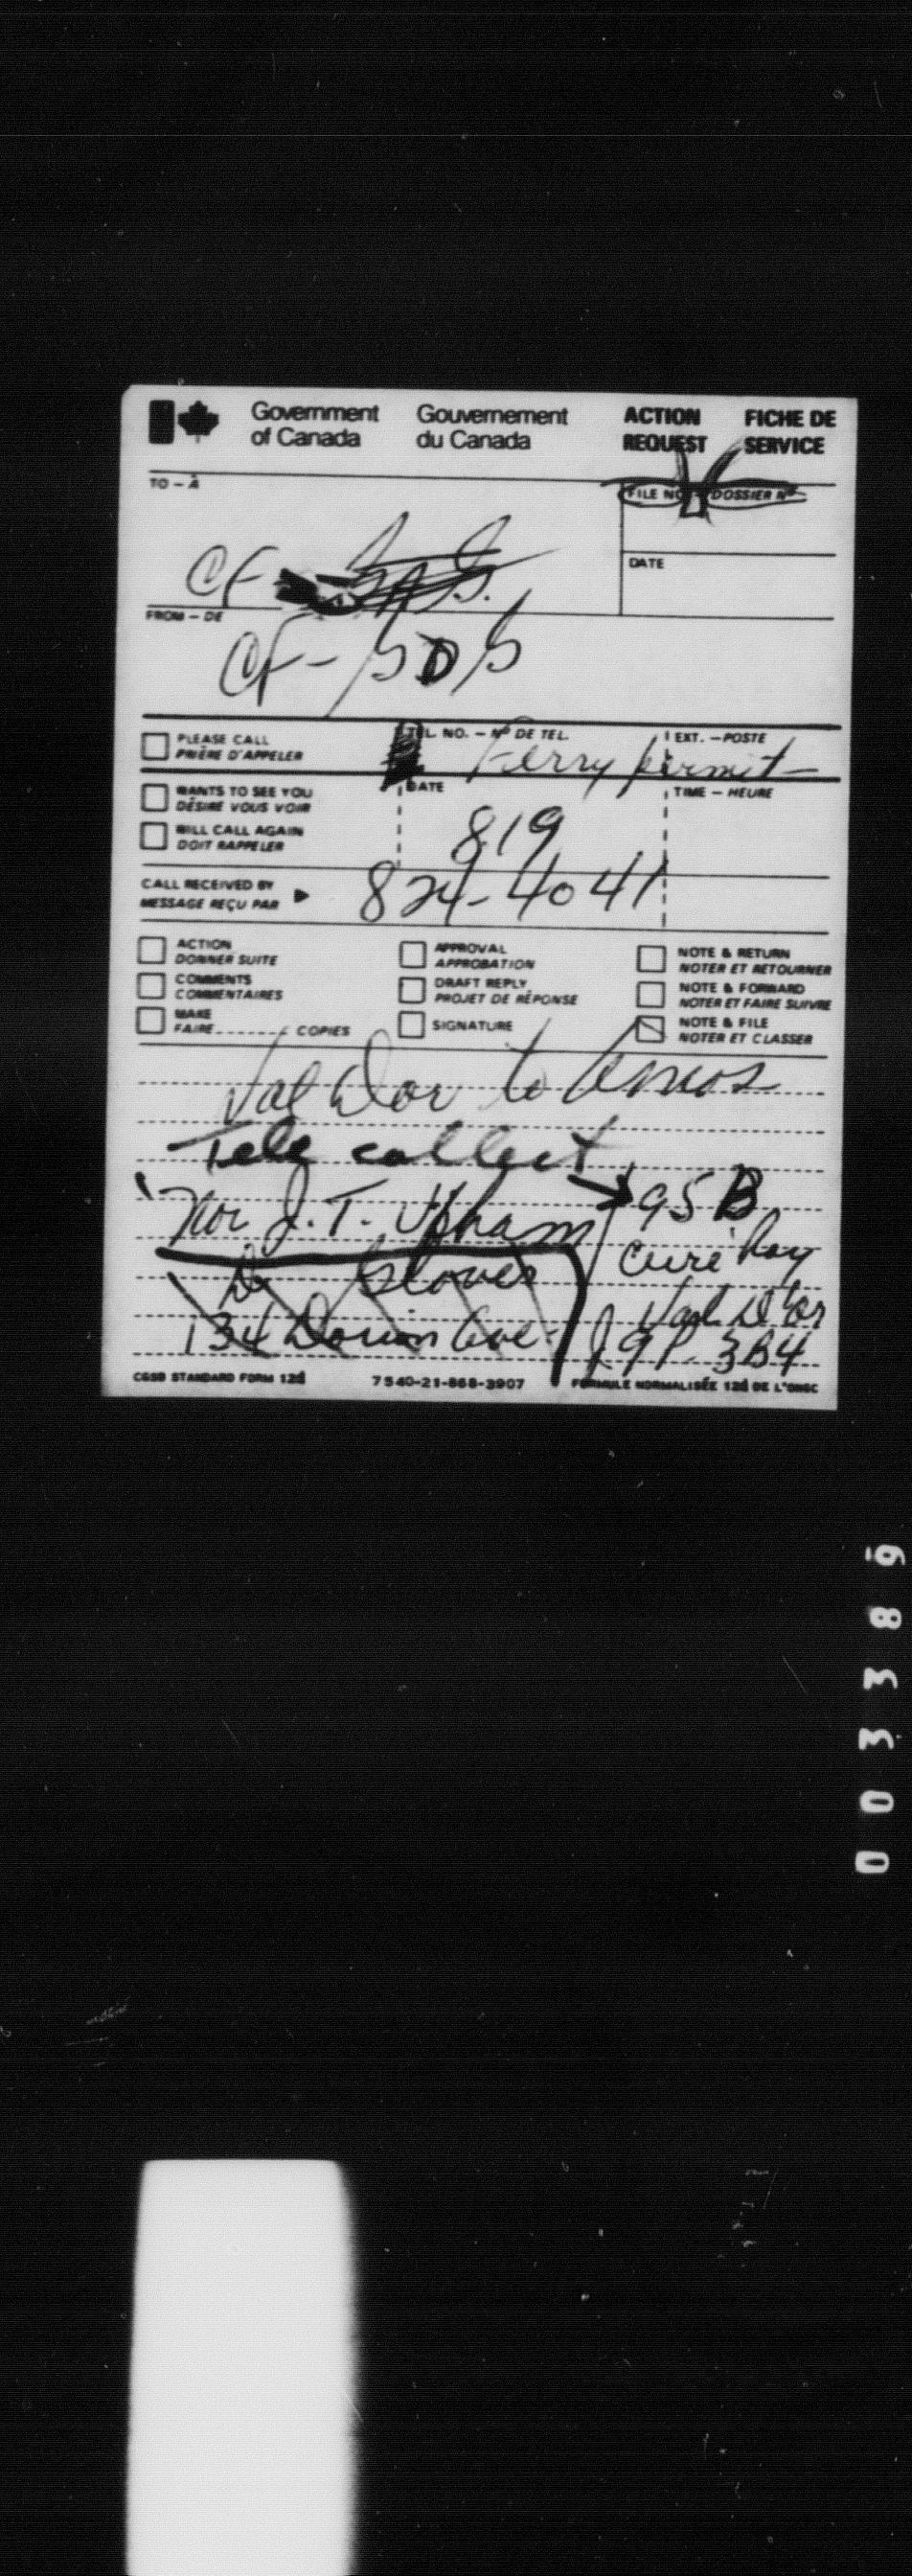 Government of Canada Gouvernement du Canada ACTION REQUEST FICHE DE SERVICE
TO – À
FILE NO. – DOSSIER Nº
DATE
CF
FROM – DE
CF - SDS
PLEASE CALL
PRIÈRE D'APPELER
TEL. NO. – Nº DE TEL.
EXT. – POSTE
Ferry permit
WANTS TO SEE YOU
DÉSIRE VOUS VOIR
DATE
TIME – HEURE
WILL CALL AGAIN
DOIT RAPPELER
819
CALL RECEIVED BY
MESSAGE REÇU PAR
824-4041
ACTION
DONNER SUITE
APPROVAL
APPROBATION
NOTE & RETURN
NOTER ET RETOURNER
COMMENTS
COMMENTAIRES
DRAFT REPLY
PROJET DE RÉPONSE
NOTE & FORWARD
NOTER ET FAIRE SUIVRE
MAKE
FAIRE COPIES
SIGNATURE
NOTE & FILE
NOTER ET CLASSER
Val Dor to Amos
Tele collect
J. T. Upham
95 B
Curé Roy
Val D'Or
J9P 3B4
Glover
134 Ave.
CGSB STANDARD FORM 12d 7540-21-868-3907 FORMULE NORMALISÉE 12d DE L'ONGC
003389